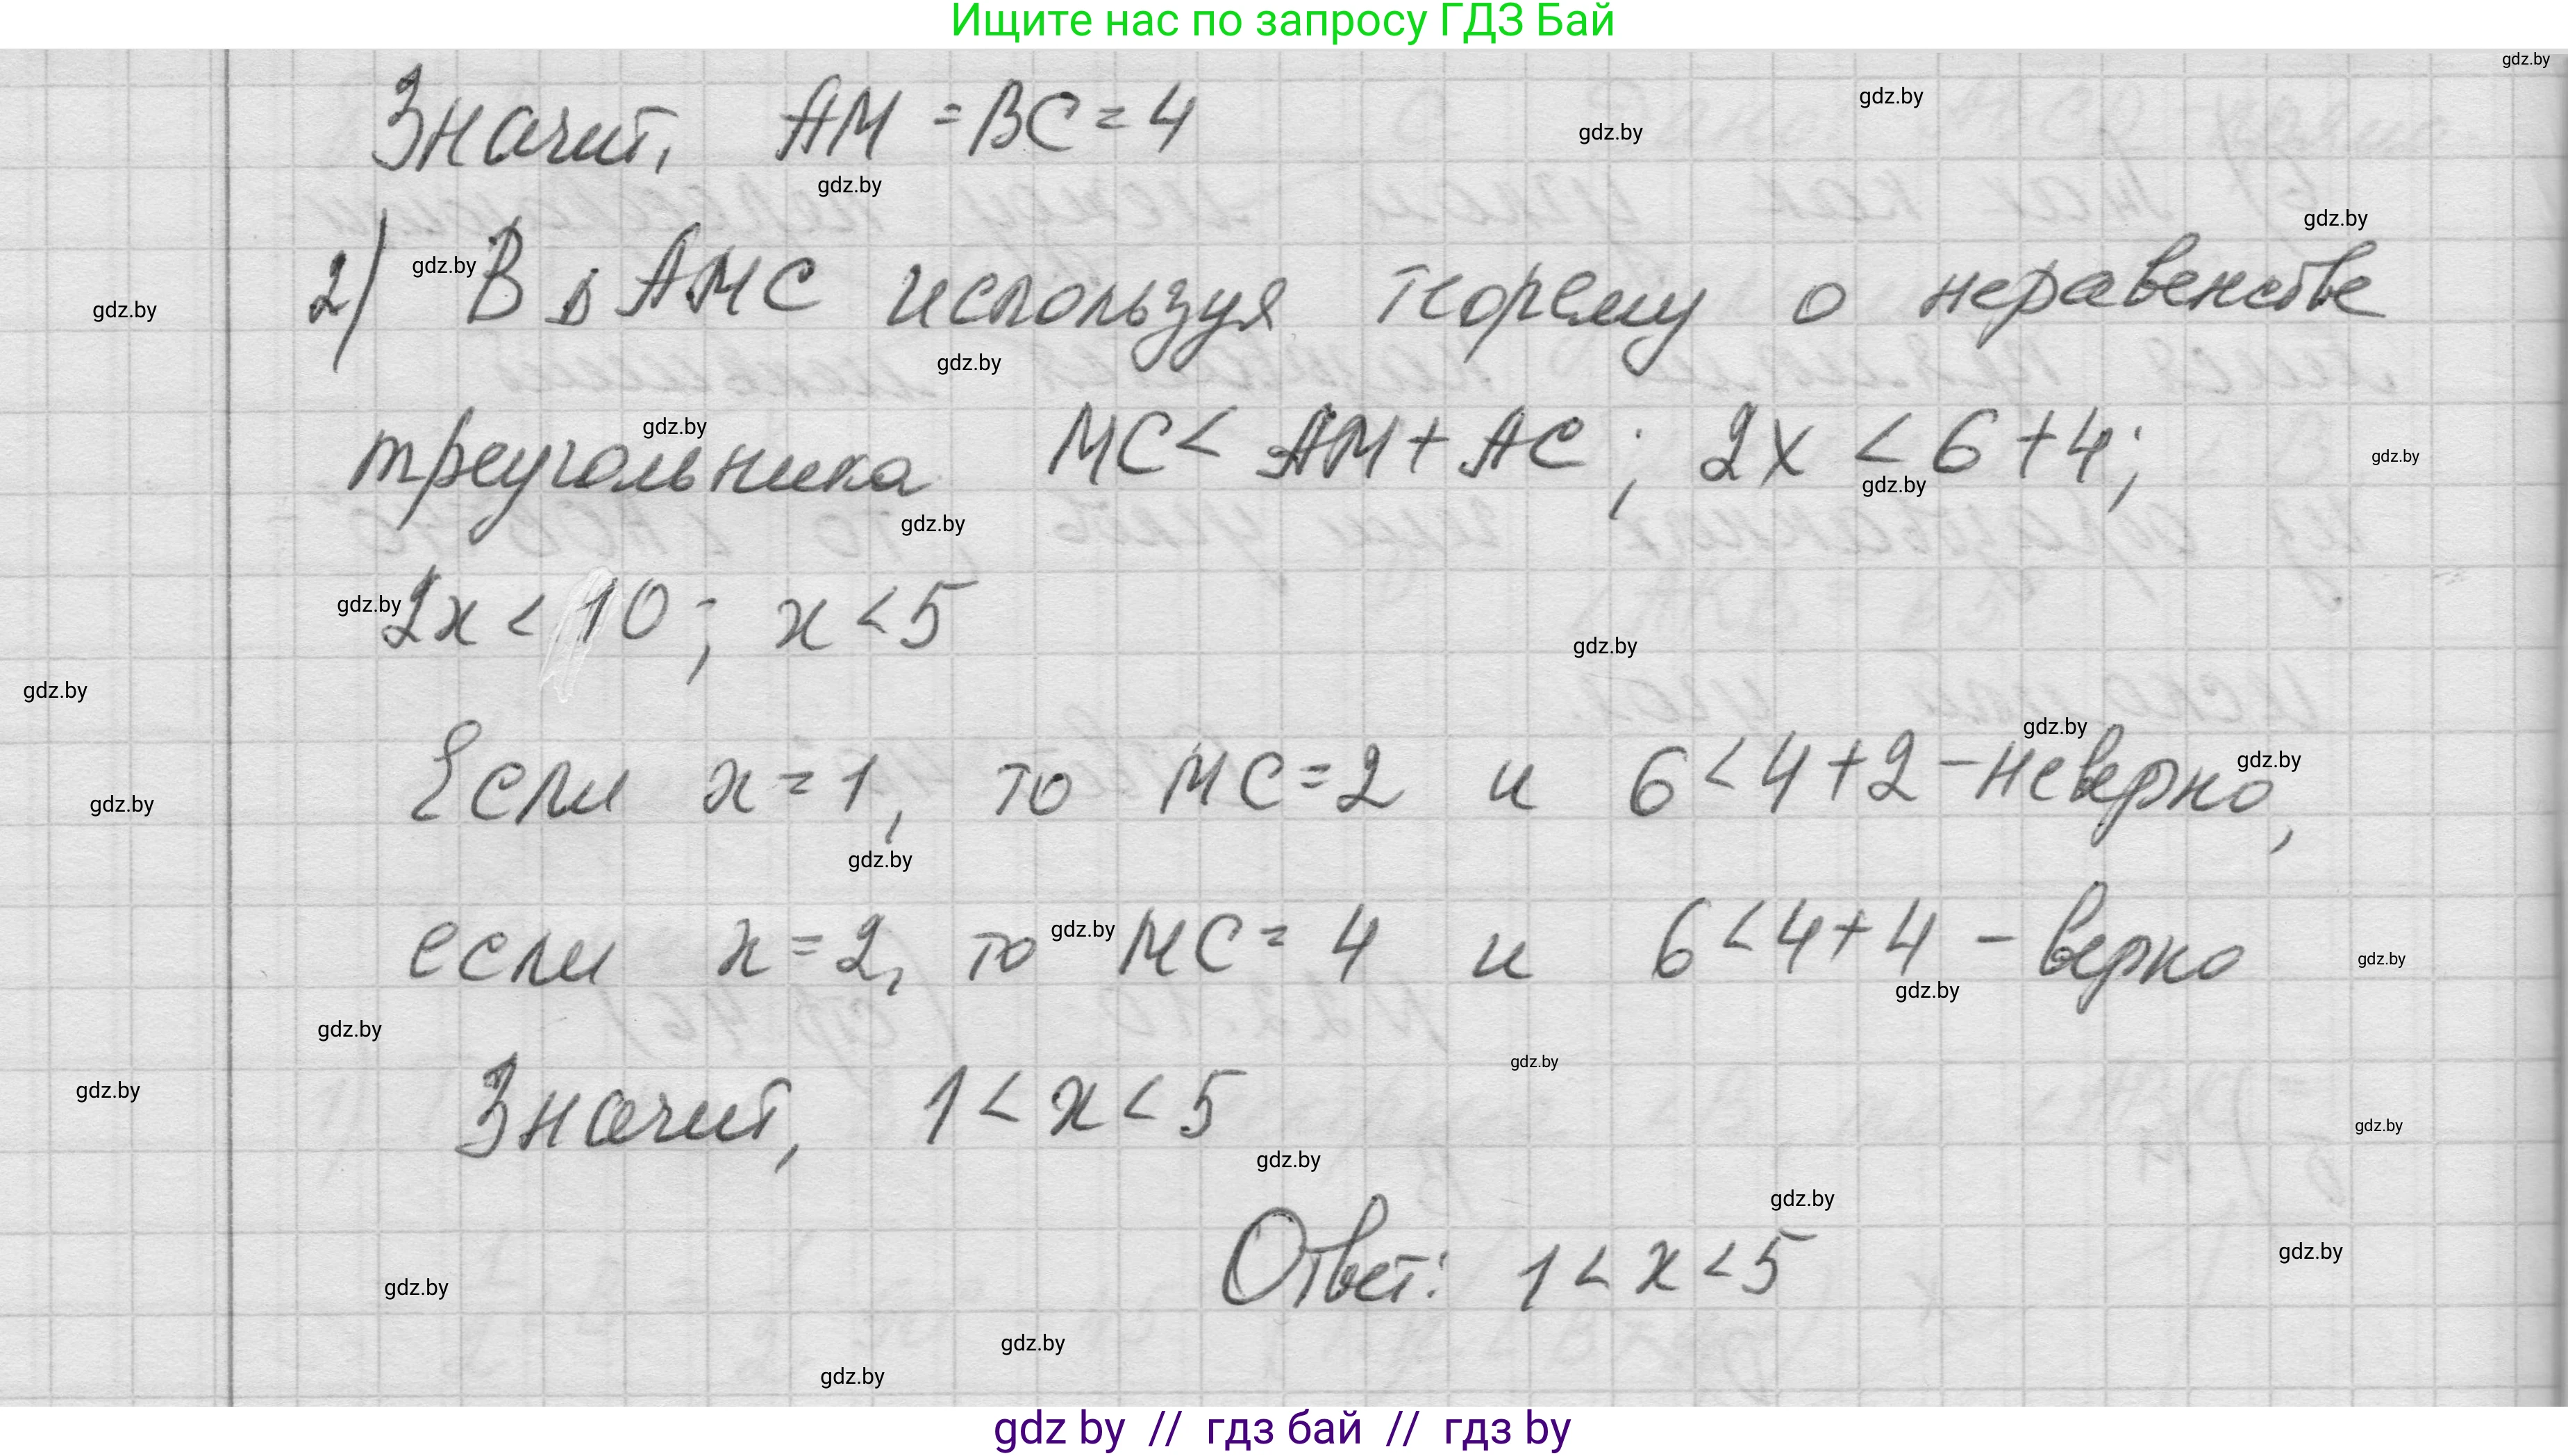 Ищите нас по запросу ГДЗ Бай
gdz.by
gdz.by
gdz.by
Значит, AM = BC = 4
gdz.by
gdz.by
gdz.by
2) В △ AMC используя теорему о неравенстве
gdz.by
gdz.by
gdz.by
треугольника MC < AM + AC ; 2x < 6 + 4;
gdz.by
gdz.by
gdz.by
gdz.by
2x < 10 ; x < 5
gdz.by
gdz.by
gdz.by
Если x = 1, то MC = 2 и 6 < 4 + 2 – неверно,
gdz.by
gdz.by
gdz.by
если x = 2, то MC = 4 и 6 < 4 + 4 – верно
gdz.by
gdz.by
gdz.by
gdz.by
gdz.by
Значит, 1 < x < 5
gdz.by
gdz.by
gdz.by
gdz.by
Ответ: 1 < x < 5
gdz.by
gdz.by
gdz.by
gdz.by
gdz by // гдз бай // гдз by